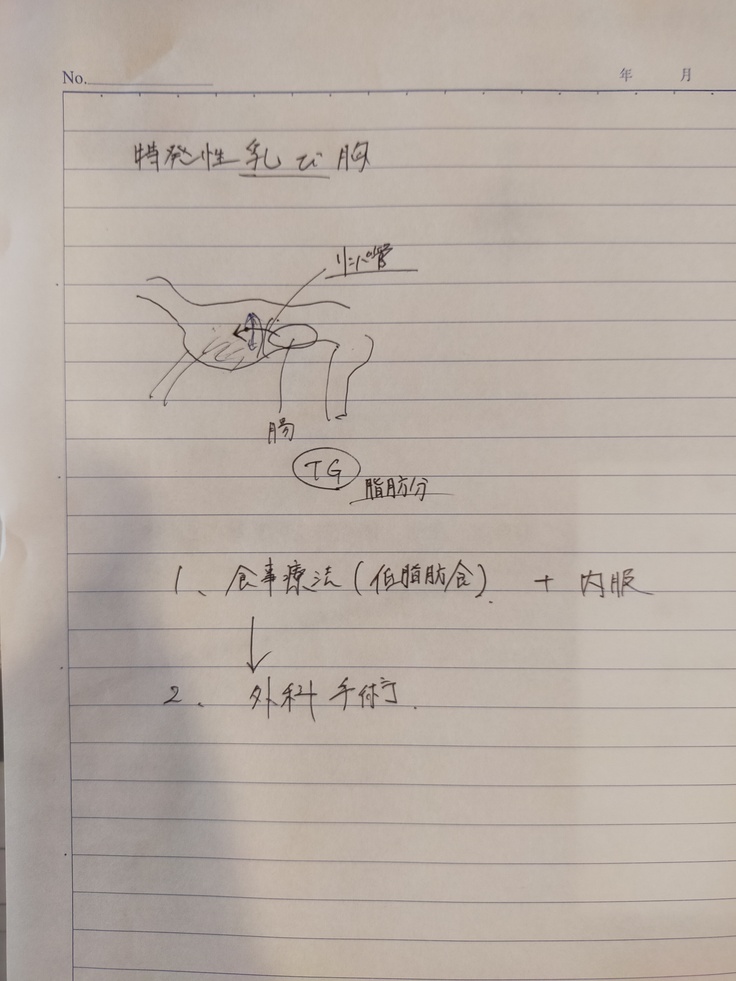 No.
年 月
特発性乳び胸
リンパ管
腸
TG
脂肪分
1、食事療法(低脂肪食) + 内服
↓
2、外科手術.